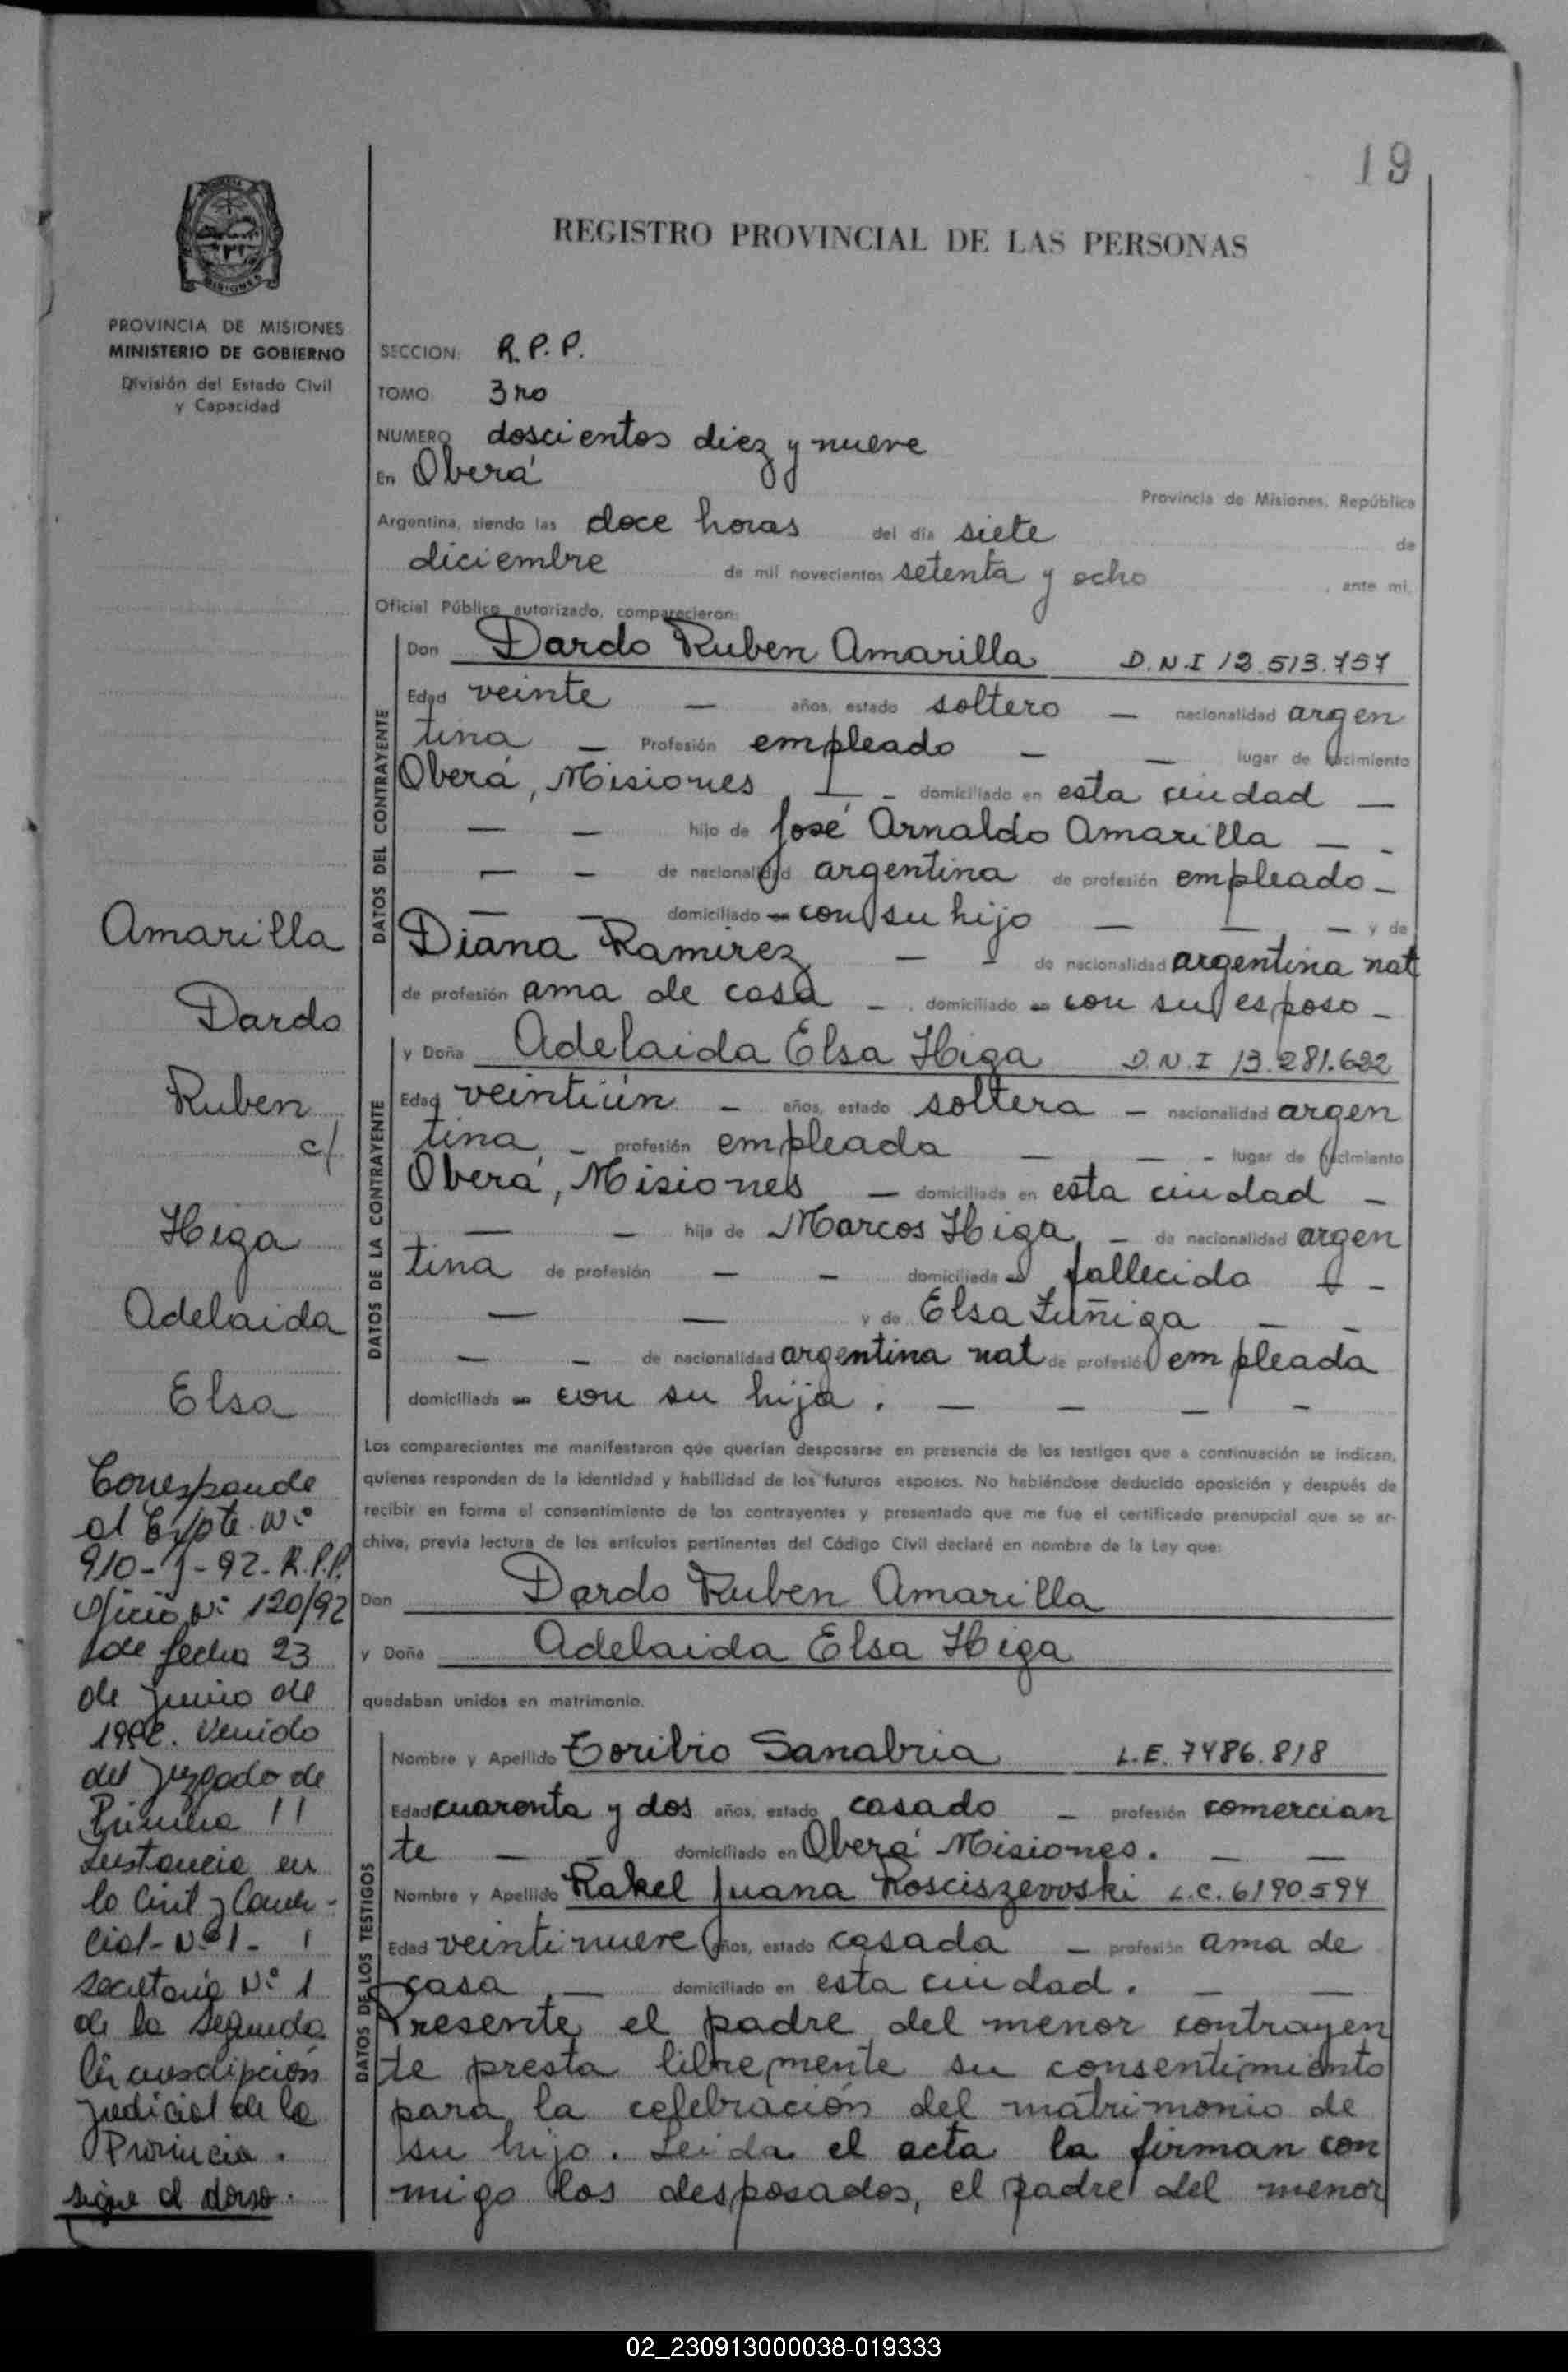 19
REGISTRO PROVINCIAL DE LAS PERSONAS
PROVINCIA DE MISIONES
MINISTERIO DE GOBIERNO
División del Estado Civil
y Capacidad
SECCION: R. P. P.
TOMO 3ro
NUMERO doscientos diez y nueve
En Oberá Provincia de Misiones, República
Argentina, siendo las doce horas del día siete de
diciembre de mil novecientos setenta y ocho, ante mi,
Oficial Público autorizado, comparecieron:
DATOS DEL CONTRAYENTE
Don Dardo Ruben Amarilla D.N.I 12.513.757
Edad veinte — años, estado soltero — nacionalidad argen
tina — Profesión empleado — — lugar de nacimiento
Oberá, Misiones — - domiciliado en esta ciudad —
— — hijo de José Arnaldo Amarilla — -
— — de nacionalidad argentina de profesión empleado -
— — domiciliado en con su hijo — — — y de
Diana Ramirez — - de nacionalidad argentina nat
de profesión ama de casa - domiciliado en con su esposo -
DATOS DE LA CONTRAYENTE
y Doña Adelaida Elsa Higa D.N.I 13.281.622
Edad veintiún — años, estado soltera — nacionalidad argen
tina, - profesión empleada — — - lugar de nacimiento
Oberá, Misiones — domiciliada en esta ciudad -
— — hija de Marcos Higa, - de nacionalidad argen
tina de profesión — — domiciliada en fallecido — -
— — y de Elsa Zuñiga — -
— - de nacionalidad argentina nat de profesión empleada
domiciliada en con su hija. — — — -
Los comparecientes me manifestaron que querían desposarse en presencia de los testigos que a continuación se indican,
quienes responden de la identidad y habilidad de los futuros esposos. No habiéndose deducido oposición y después de
recibir en forma el consentimiento de los contrayentes y presentado que me fue el certificado prenupcial que se ar-
chiva, previa lectura de los artículos pertinentes del Código Civil declaré en nombre de la Ley que:
Don Dardo Ruben Amarilla
y Doña Adelaida Elsa Higa
quedaban unidos en matrimonio.
DATOS DE LOS TESTIGOS
Nombre y Apellido Toribio Sanabria L.E. 7486.818
Edad cuarenta y dos años, estado casado — profesión comercian
te — — domiciliado en Oberá Misiones. — —
Nombre y Apellido Rakel Juana Rosciszewski L.C. 6190594
Edad veintinueve años, estado casada — profesión ama de
casa — domiciliado en esta ciudad. — —
Presente el padre del menor contrayen
te presta libremente su consentimiento
para la celebración del matrimonio de
su hijo. Leida el acta la firman con
migo los desposados, el padre del menor
Amarilla
Dardo
Ruben
c/
Higa
Adelaida
Elsa
Corresponde
al Expte. Nº
910-J-92-R.P.P.
Oficio Nº 120/92
de fecha 23
de junio de
1992. Venido
del Juzgado de
Primera
Instancia en
lo Civil y Comer-
cial-Nº1-
secretaria Nº 1
de la segunda
Circunscripción
judicial de la
Provincia.
sigue al dorso.
02_230913000038-019333